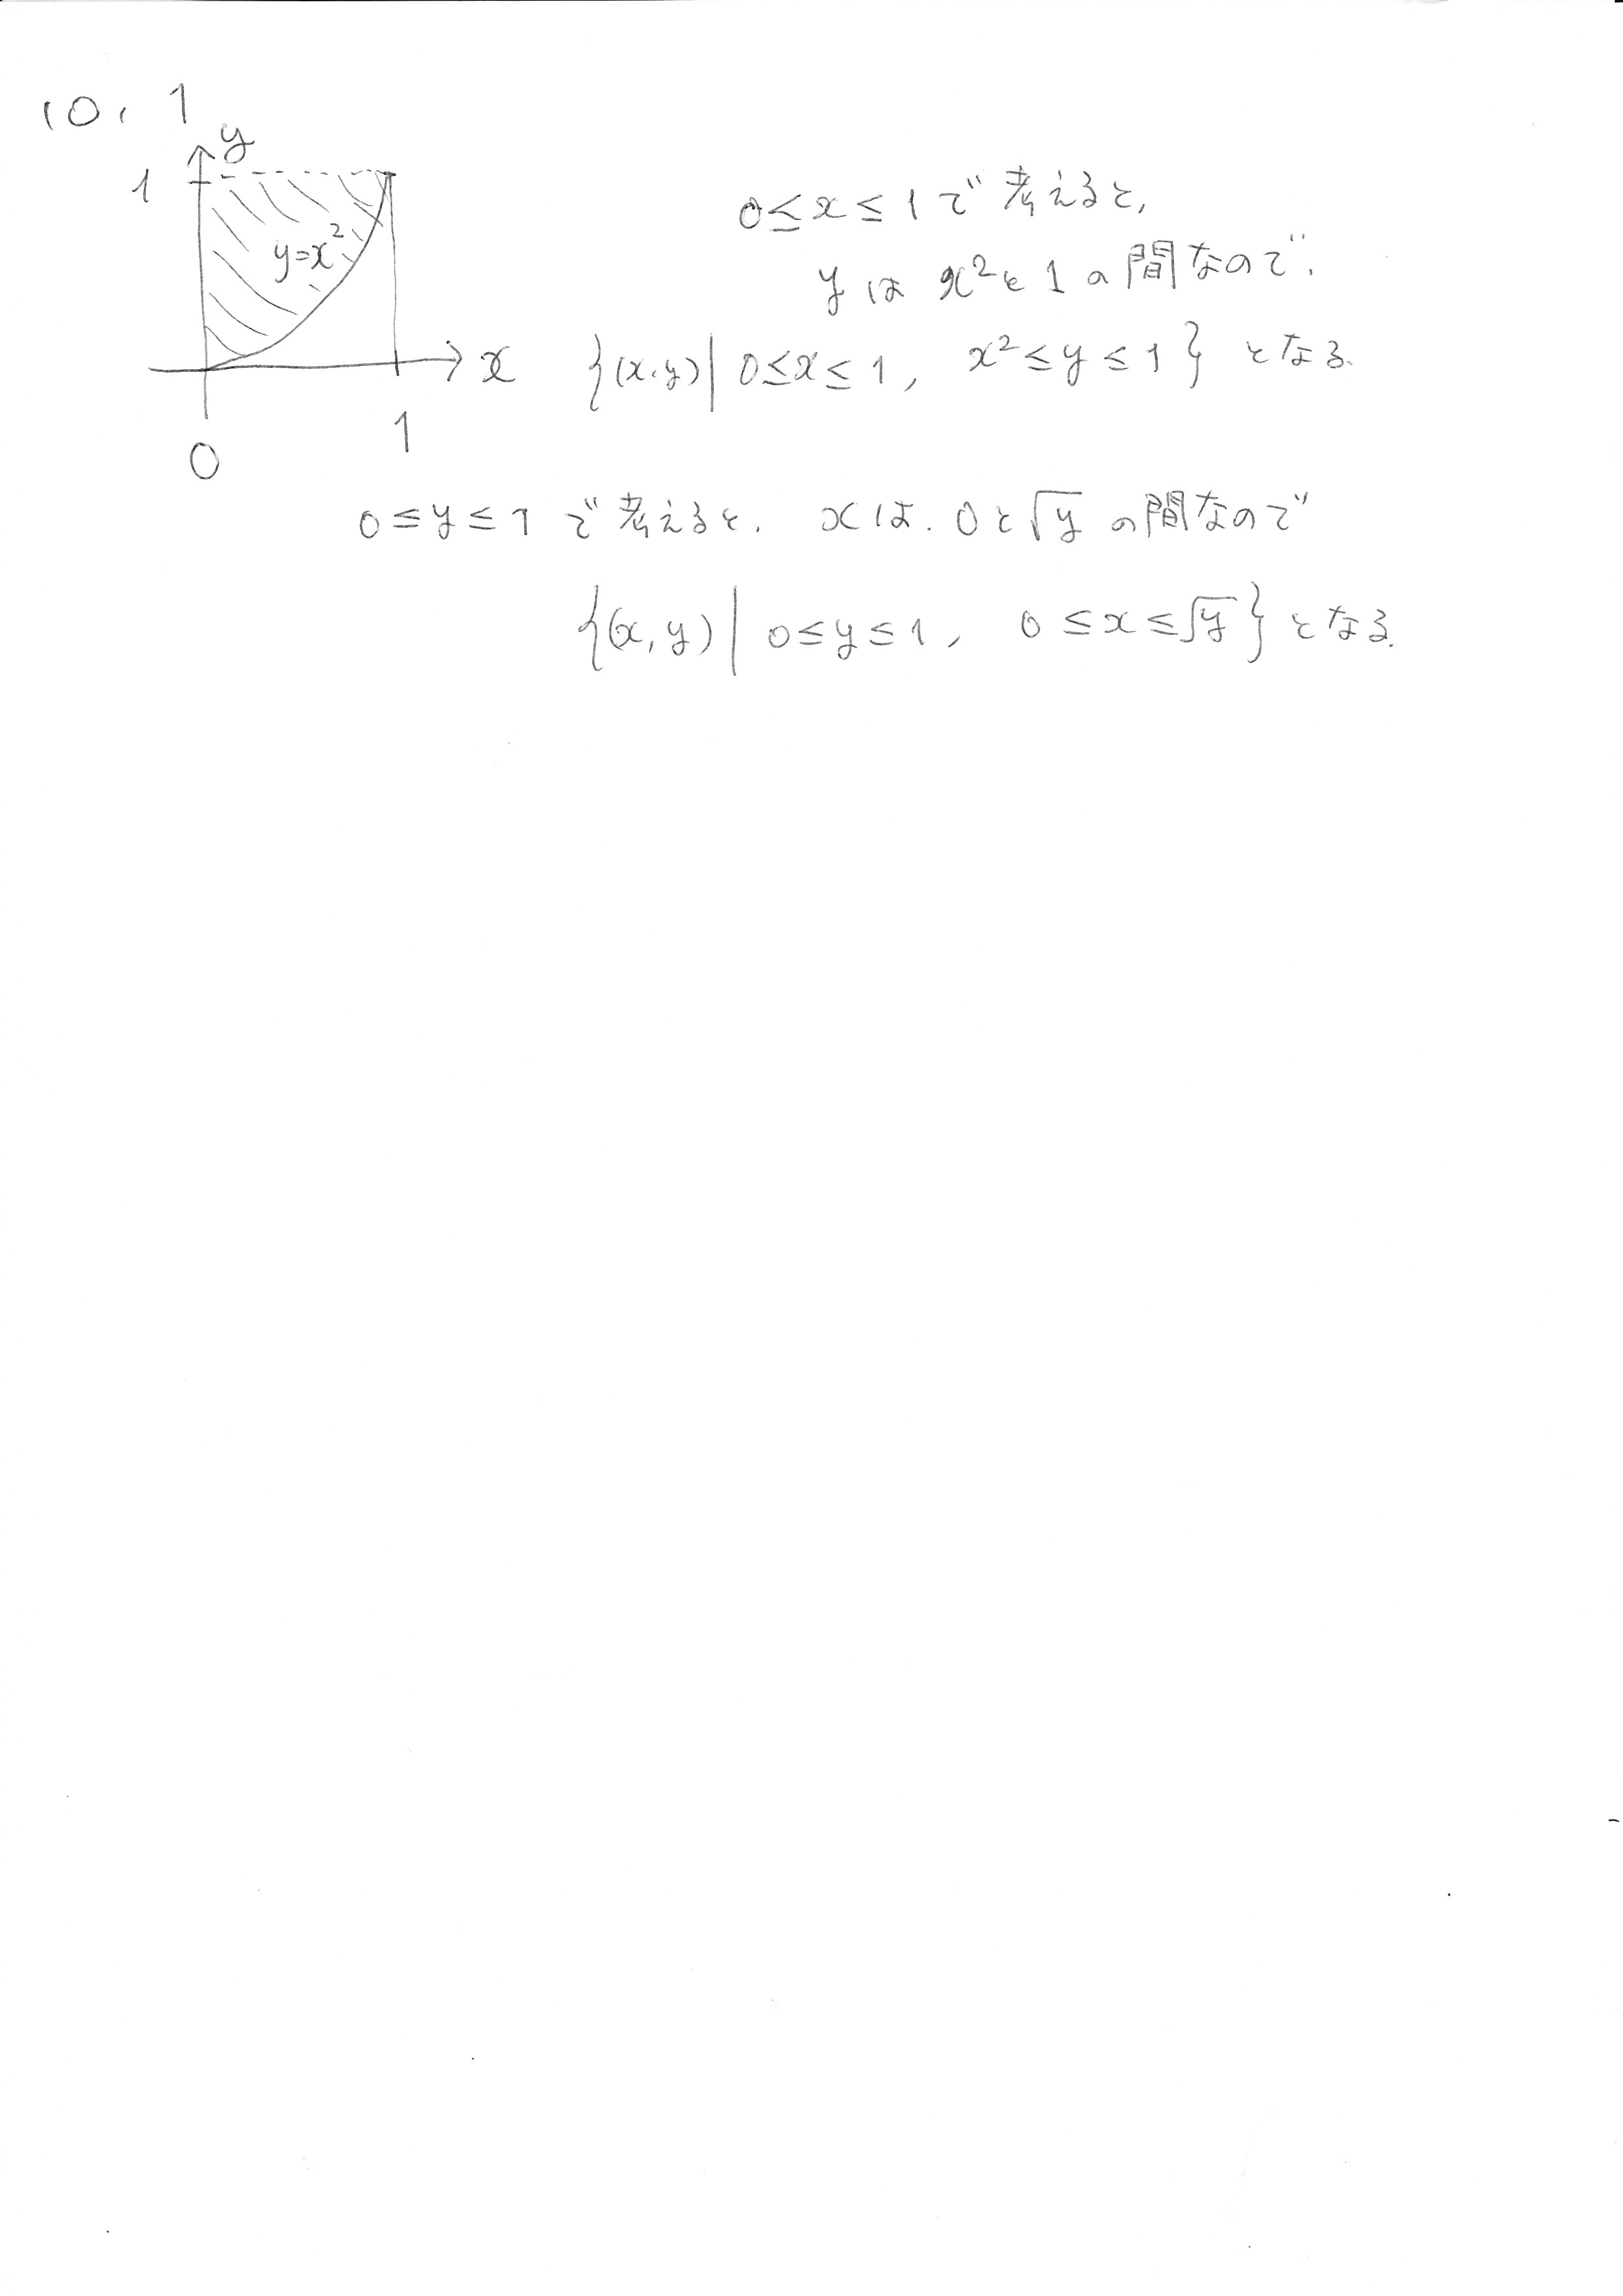 10. 1
y
1
y=x²
x
0
1
0≤x≤1で考えると,
yはx²と1の間なので.
{(x,y)| 0≤x≤1, x²≤y≤1}となる.
0≤y≤1で考えると. xは. 0と√yの間なので
{(x,y)| 0≤y≤1, 0≤x≤√y}となる.